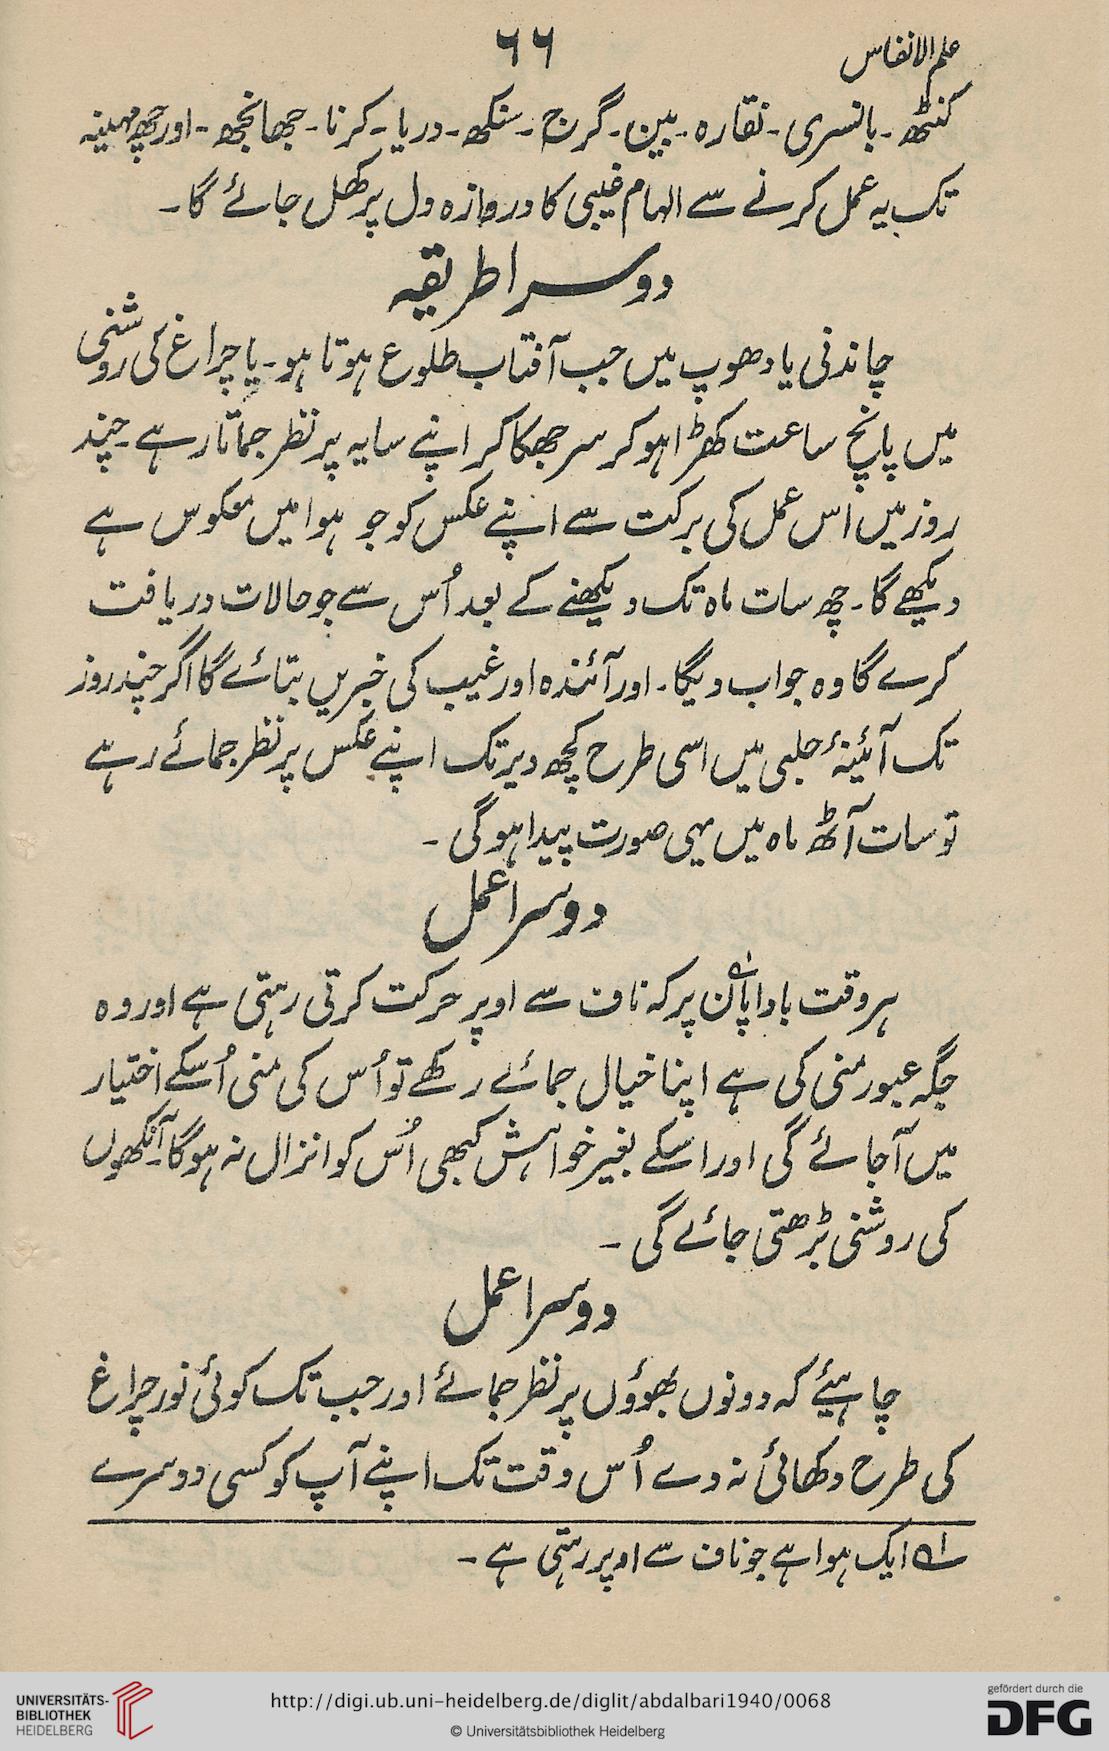 علم الانفاس
۶۶
کنٹھ - بانسری - نقارہ - بین - گرج - سنکھ - دریا - کرنا - جھانجھ - اور چھ مہینہ
تک یہ عمل کرنے سے الہام غیبی کا دروازہ دل پر کھل جائے گا -
دوسرا طریقہ
چاندنی یا دھوپ میں جب آفتاب طلوع ہوتا ہو - یا چراغ کی روشنی
میں پانچ ساعت کھڑا ہو کر سر جھکا کر اپنے سایہ پر نظر جماتا رہے - چند
روز میں اس عمل کی برکت سے اپنے عکس کو جو ہوا میں معکوس ہے
دیکھے گا - چھ سات ماہ تک دیکھنے کے بعد اُس سے جو حالات دریافت
کرے گا وہ جواب دیگا - اور آئندہ اور غیب کی خبریں بتائے گا اگر چند روز
تک آئینۂ حلبی میں اسی طرح کچھ دیر تک اپنے عکس پر نظر جمائے رہے
تو سات آٹھ ماہ میں یہی صورت پیدا ہوگی -
دوسرا عمل
ہر وقت باد اپان ؁۱ پر کہ ناف سے اوپر حرکت کرتی رہتی ہے اور وہ
جگہ عبور منی کی ہے اپنا خیال جمائے رکھے تو اُس کی منی اُسکے اختیار
میں آجائے گی اور اسکے بغیر خواہش کبھی اُس کو انزال نہ ہوگا - آنکھوں
کی روشنی بڑھتی جائے گی -
دوسرا عمل
چاہیئے کہ دونوں بھوؤں پر نظر جمائے اور جب تک کوئی نور چراغ
کی طرح دکھائی نہ دے اُس وقت تک اپنے آپ کو کسی دوسرے
؁۱ ایک ہوا ہے جو ناف سے اوپر رہتی ہے -
UNIVERSITÄTS-
BIBLIOTHEK
HEIDELBERG
http://digi.ub.uni-heidelberg.de/diglit/abdalbari1940/0068
© Universitätsbibliothek Heidelberg
gefördert durch die
DFG